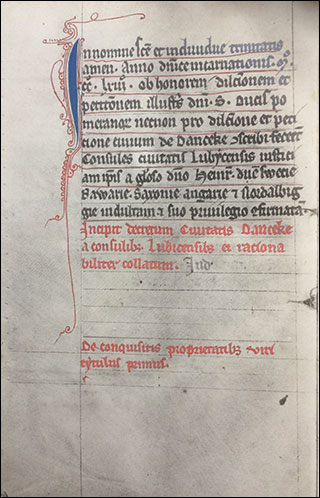 In nomine sce et individue trinitatis
amen. Anno dnice incarnationis. Mº.
ccº. lxiii. ob honorem dilctionem et
petitionem illustris dni. S. ducis po
meranor necnon pro dilctione et peti
tione civium de Danceke scribi fecert
Consules civitatis Lubycensis iusticiā
a gloso duo Heinr. duc
Bawarie Saxonie angarie &
gie indultam & suo privilegio cfirmatā
Incipit decretum Civitatis Danceke
a consulibz Lubicensibz et rationa
biliter collatum. Ind
De conquisitis proprietatibz viri
tytulus primus.